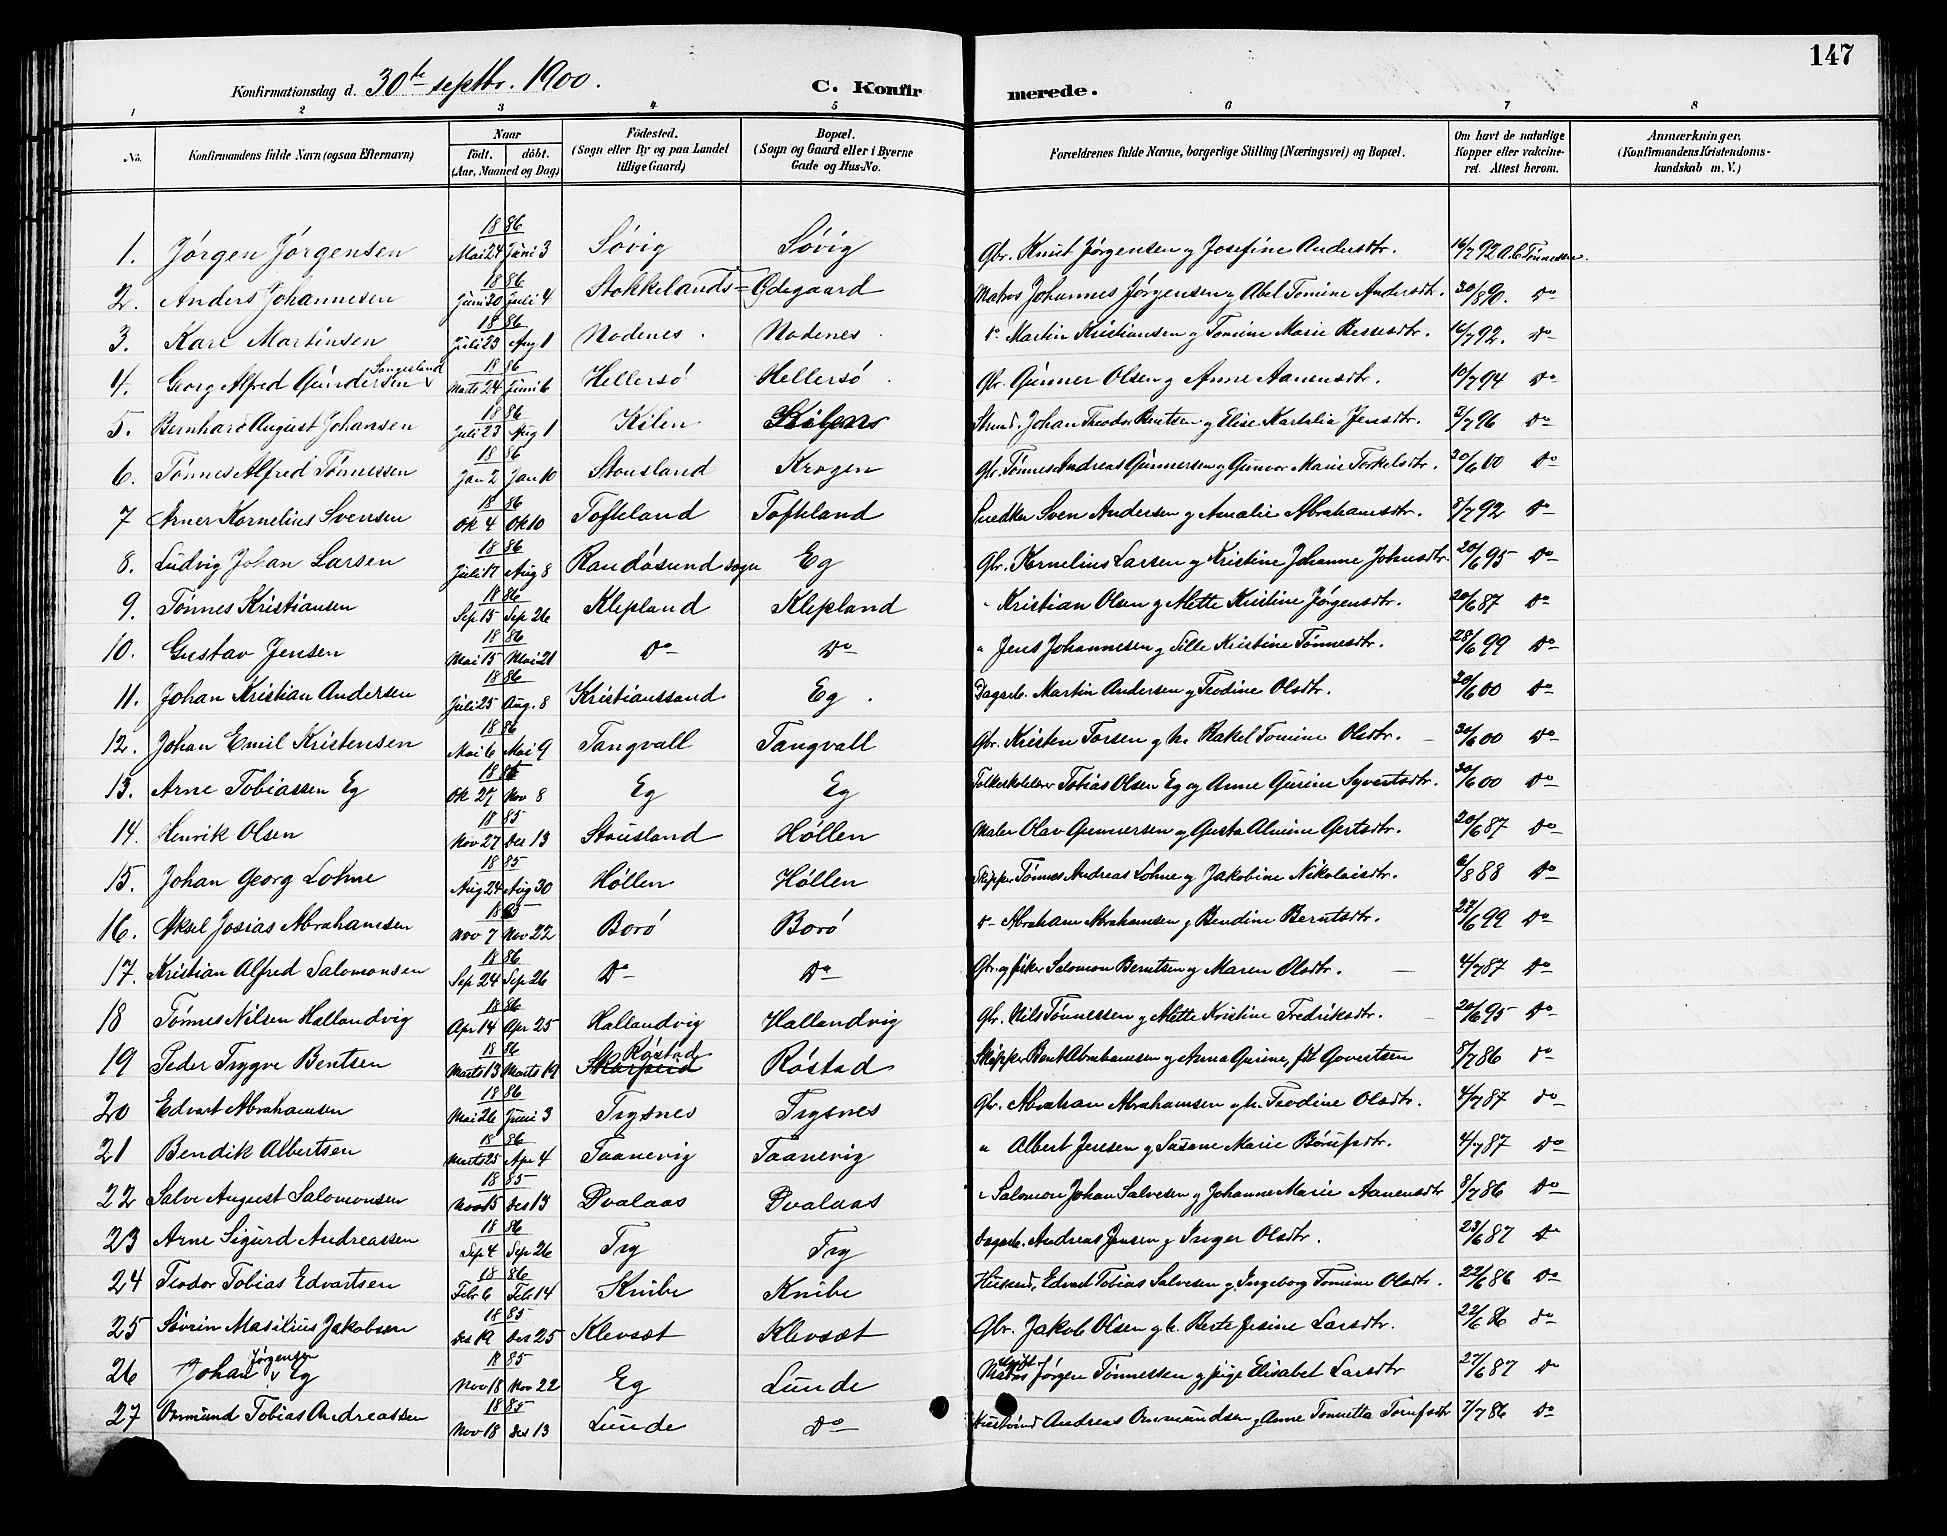 147
Konfirmationsdag d. 30te septbr. 1900. C. Konfirmerede.
1 2 3 4 5 6 7 8
No. Konfirmandens fulde Navn (ogsaa Efternavn) Naar født. døbt. (Aar, Maaned og Dag) Fødested. (Sogn eller By og paa Landet tillige Gaard) Bopæl. (Sogn og Gaard eller i Byerne Gade og Hus-No. Forældrenes fulde Navne, borgerlige Stilling (Næringsvei) og Bopæl. Om havt de naturlige Kopper eller vakcineret. Attest herom. Anmærkninger. (Konfirmandens Kristendomskundskab m. V.)
1886
1. Jørgen Jørgensen Mai 24 Juni 3 Søvig Søvig Gbr. Knut Jørgensen g Josefine Andersdtr. 16/7 92 A. C. Tønnessen.
1886
2. Anders Johannesen Juni 20 Juli 4 Stokkelands= Ødegaard Matros Johannes Jørgensen g Abel Tomine Andersdtr. 30/8 90. Do
1886
3. Karl Martinsen Juli 23 Aug 1 Nodenes. Nodenes. Do Martin Kristiansen g Tomine Marie Bessesdtr. 16/7 92. Do
1886
Sangesland
4. Georg Alfred Gundersen v Marts 24 Juni 6 Hellersø Hellersø. Gbr. Gunner Olsen g Anne Aanensdtr. 10/7 94 Do
1886
5. Bernhard August Johansen Juli 23 Aug 1 Kilen Kilens Johan Theodor Berntsen g Elise Jensdtr. 2/7 96 Do
1886
6. Tønnes Alfred Tønnessen Jan 2 Jan 10 Stousland Krogen Gbr. Tønnes Andreas Gunnersen g Gunvor Marie Torkelsdtr. 20/6 00 Do
1886
7 Arner Kornelius Svensen Ok 4 Ok 10 Toftland Toftland Snedker Sven Andersen g Amalie Abrahamsdtr. 8/7 92 Do
1886
8. Ludvig Johan Larsen Juli 17 Aug 8 Randøsund sogn Eg Gbr. Kornelius Larsen g Kristine Johanne Johnsdtr. 20/6 95 Do
1886
9. Tønnes Kristiansen Sep 15 Sep 26 Klepland Klepland " Kristian Olsen g Mette Kristine Jørgensdtr. 20/6 87 Do
1886
10. Gustav Jensen Mai 15 Mai 21 Do Do " Jens Johannesen g Sille Kristine Tønnesdtr. 28/6 99 Do
1886
11. Johan Kristian Andersen Juli 25 Aug. 8 Kristianssand Eg. Dagarb. Martin Andersen g Teodine Olsdtr. 20/6 00 Do
1886
12. Johan Emil Kristensen Mai 6 Mai 9 Tangvall Tangvall Gbr. Kristen Torsen g h. Rakel Tomine Olsdtr. 30/6 00 Do
1885
13. Arne Tobiassen Eg Ok 27 Nov 8 Eg Eg Folkeskolelærer Tobias Olsen Eg og Anne Gurine Syvertsdtr. 30/6 00 Do
1885
14. Henrik Olsen Nov 27 Des 13 Stousland Høllen Maler Olav Gunnersen g Gusta Almine Gertsdtr. 20/6 87 Do
1885
15. Johan Georg Lohne Aug 24 Aug 30 Høllen Høllen Skipper Tønnes Andreas Lohne g Jakobine Nikolaisdtr. 6/8 88 Do
1885
16. Aksel Josias Abrahamsen Nov 7 Nov 22 Borø Borø Do Abraham Abrahamsen g Bendine Berntsdtr. 27/6 99 Do
1886
17. Kristian Alfred Salomonsen Sep 24 Sep 26 Do Do Gbr. og fisker Salomon Berntsen g Maren Olsdtr. 4/7 87 Do
1886
18 Tønnes Nilsen Hallandvig Apr 14 Apr 25 Hallandvig Hallandvig Gbr. Nils Tønnessen g Mette Kristine Fredriksdtr. 20/6 95 Do
1886
Røstad
19 Peder Trygve Bentsen Marts 13 Marts 19 Røstad Skipper Bent Abrahamsen g Anna Gurine, fdt Govertsen 8/7 86 Do
1886
20 Edvart Abrahamsen Mai 26 Juni 3 Trysnes Trysnes Gbr. Abraham Abrahamsen g h. Teodine Olsdtr. 4/7 87 Do
1886
21 Bendik Albertsen Marts 25 Apr 4 Taanevig Taanevig " Albert Jensen g Susane Marie Børufsdtr. 4/7 87 Do
1885
22 Salve August Salomonsen Nov 15 Des 13 Dvalaas Dvalaas " Salomon Johan Salvesen g Johanne Marie Aanensdtr 8/7 86 Do
1886
23 Arne Sigurd Andreassen Sep 4 Sep 26 Try Try Dagarb. Andreas Jensen g Inger Olsdtr. 23/6 87 Do
1886
24 Teodor Tobias Edvartsen Febr 6 Feb 14 Knibe Knibe Husmd, Edvart Tobias Salvesen g Ingeborg Tomine Olsdtr. 22/6 86 Do
1885
25 Søvrin Masilius Jakobsen Des 19 Des 25 Klevsæt Klevsæt Gbr. Jakob Olsen g h. Berte Jesine Larsdtr. 22/6 86 Do
1885
Jørgensen
26 Johan v Eg Nov 18 Nov 22 Eg Lunde Matros Jørgen Tønnessen g pige Elisabet Larsdtr 27/6 87 Do
1885
27 Ommund Tobias Andreassen Nov 18 Des 13 Lunde Do Andreas Ommundsen g Anne Tonnetta Tomfsdtr 7/7 86 Do